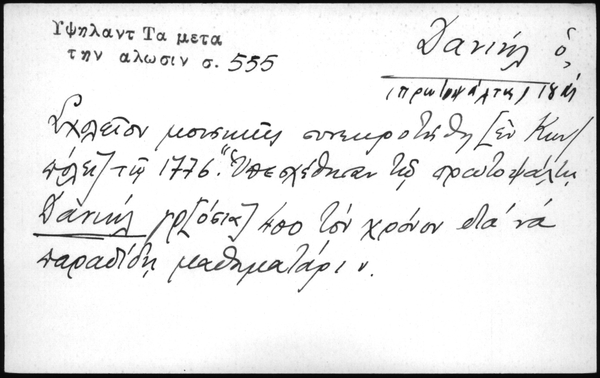 Υψηλαντ Τα μετα
την αλωσιν σ. 555
Δανιήλ ὁ
(πρωτοψάλτης)
Σχολεῖον μουσικῆς συνεκροτήθη [ἐν Κων/
πόλει] τῷ 1776. "Ὑπεσχέθησαν τῷ πρωτοψάλτῃ
Δανιήλ γρ[όσια] τὸν χρόνον διὰ νὰ
παραδίδῃ μαθηματάριον.